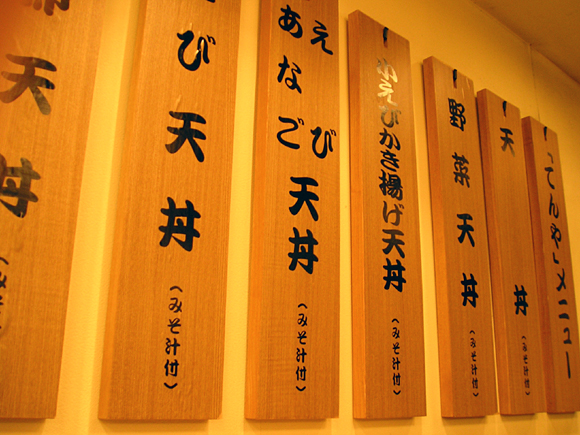 「てんや」メニュー
天丼
(みそ汁付)
野菜天丼
(みそ汁付)
小えびかき揚げ天丼
(みそ汁付)
えび
あなご
天丼
(みそ汁付)
び天丼
(みそ汁付)
天丼
(みそ汁付)